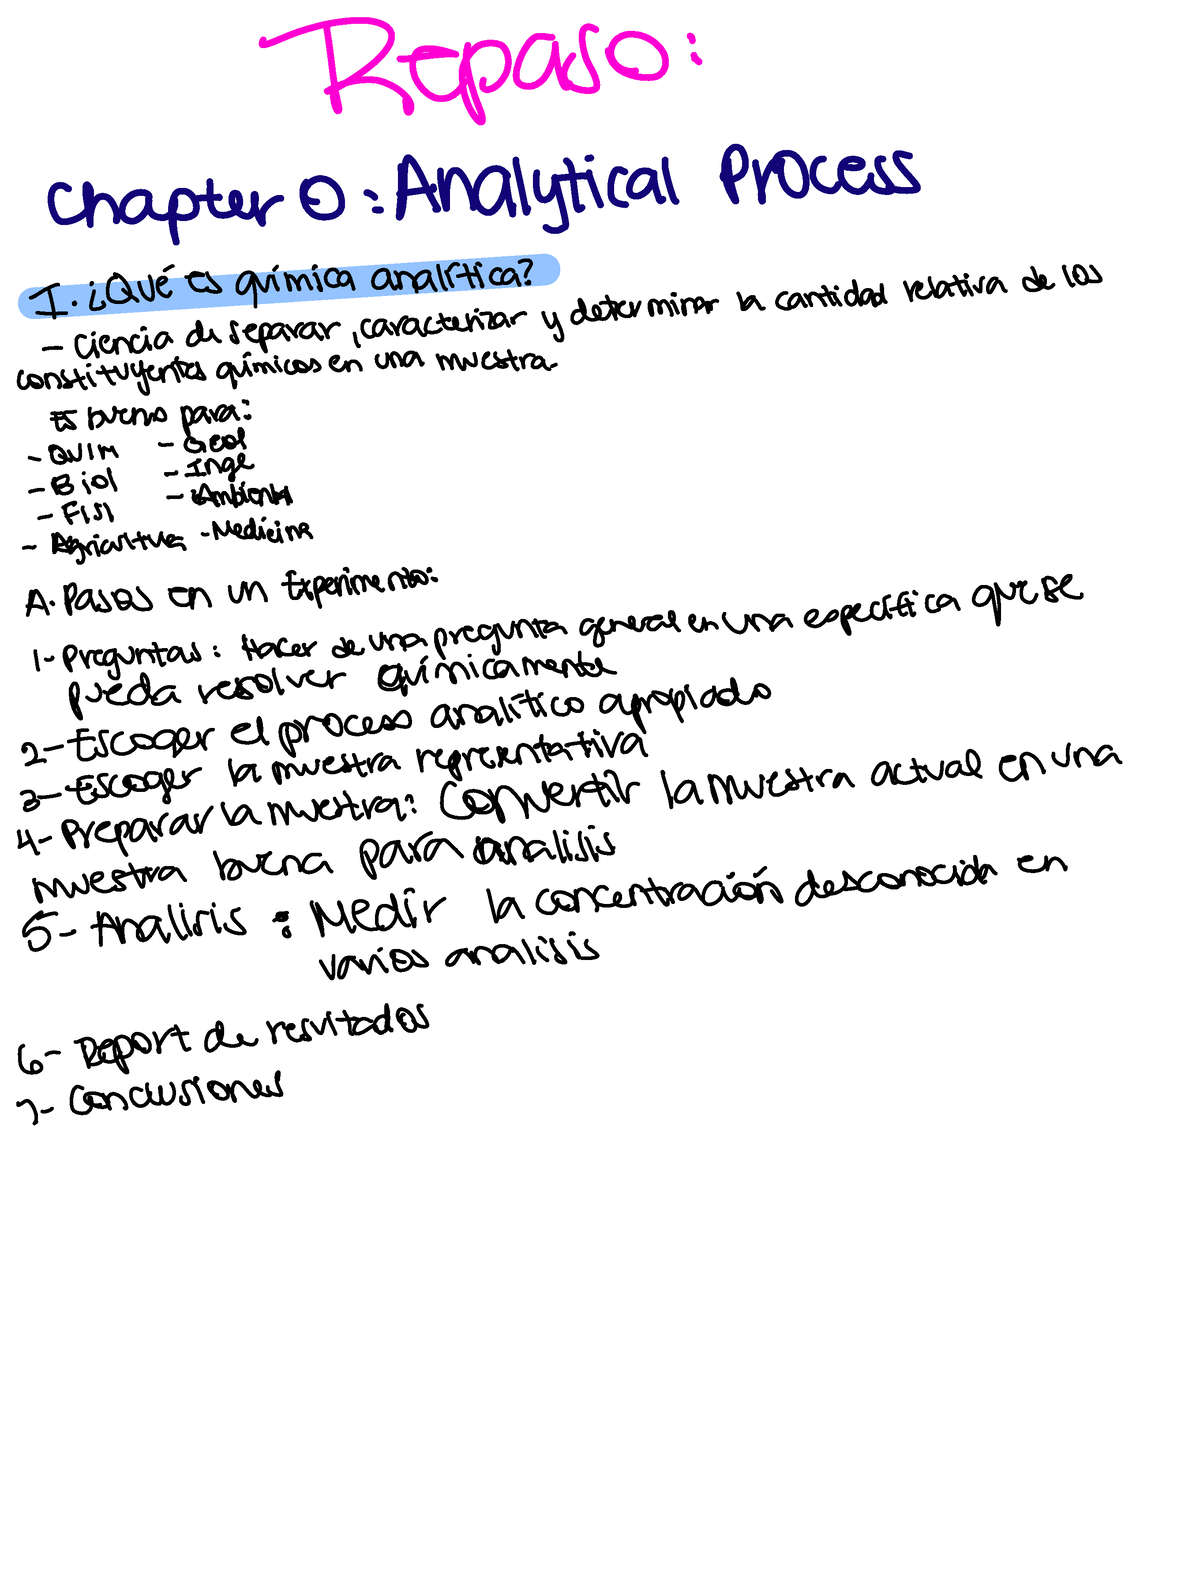 Repaso:
Chapter 0: Analytical Process
I. ¿Qué es química analítica?
- Ciencia de separar, caracterizar y determinar la cantidad relativa de los
constituyentes químicos en una muestra.
Es bueno para:
- QUIM - Geol
- Biol - Inge
- FISI - Ambiental
- Agricultura - Medicina
A. Pasos en un Experimento:
1- Preguntas: Hacer de una pregunta general en una específica que se
pueda resolver químicamente
2- Escoger el proceso analítico apropiado
3- Escoger la muestra representativa
4- Preparar la muestra: Convertir la muestra actual en una
muestra buena para analisis
5- Analisis: Medir la concentración desconocida en
varios analisis
6- Report de resultados
7- Conclusiones